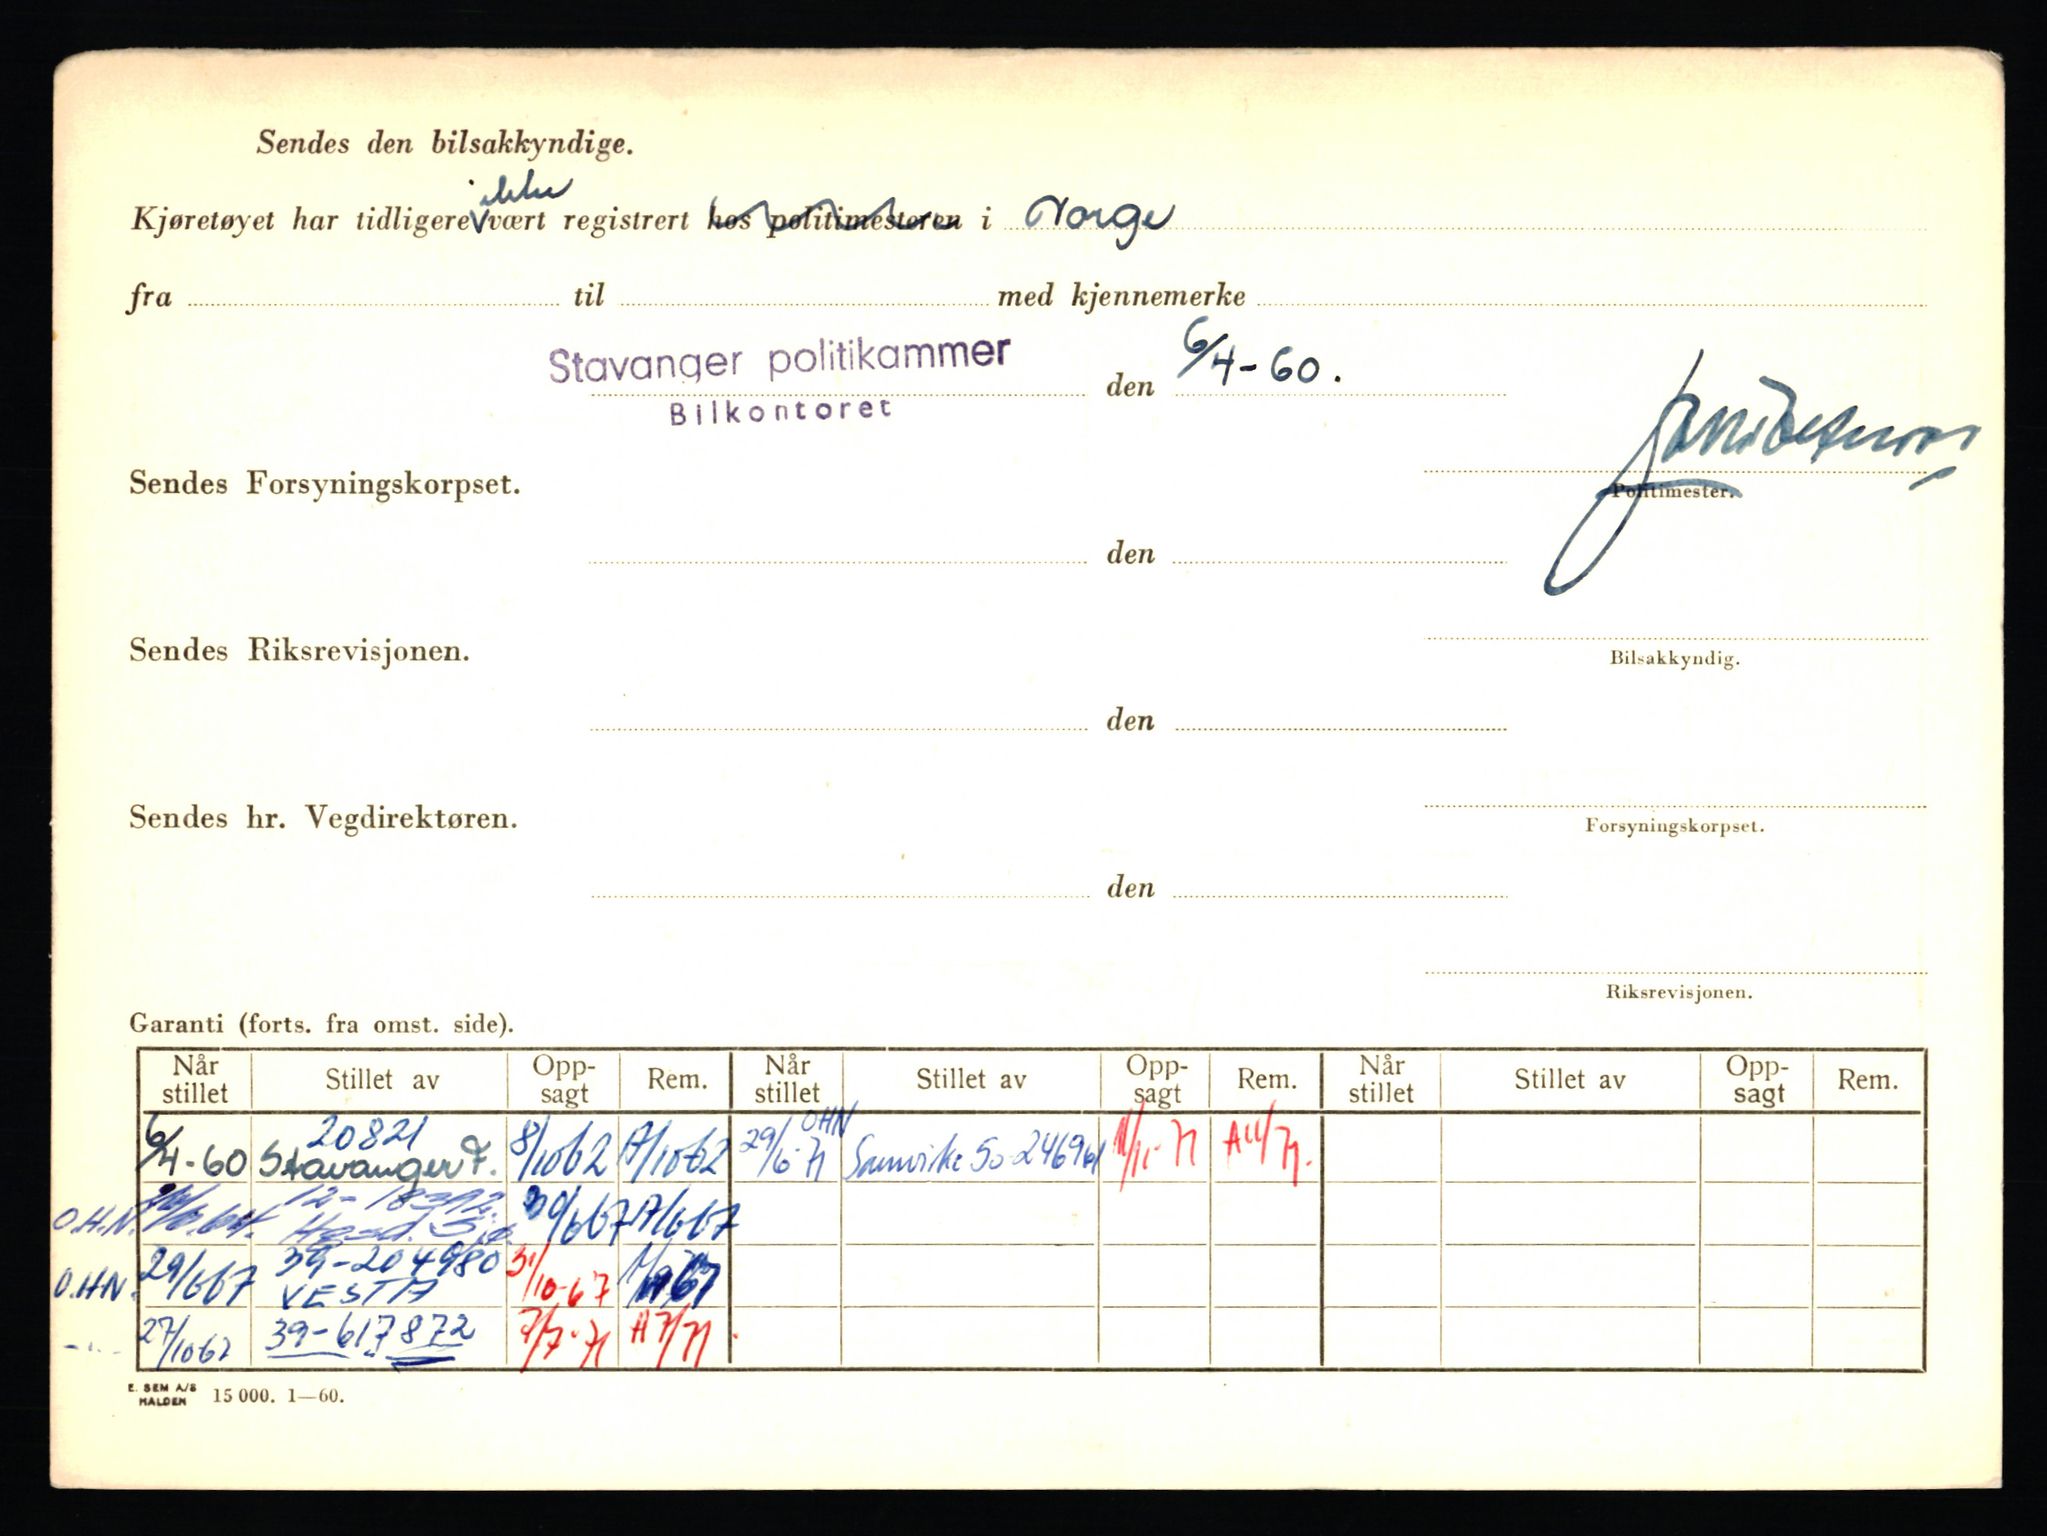 Sendes den bilsakkyndige.
ikke
Kjøretøyet har tidligere vært registrert hos politimesteren i Norge
fra til med kjennemerke
Stavanger politikammer den 6/4-60.
Bilkontoret
Sendes Forsyningskorpset.
Politimester.
den
Sendes Riksrevisjonen.
Bilsakkyndig.
den
Sendes hr. Vegdirektøren.
Forsyningskorpset.
den
Riksrevisjonen.
Garanti (forts. fra omst. side).
Når stillet Stillet av Opp-sagt Rem. Når stillet Stillet av Opp-sagt Rem. Når stillet Stillet av Opp-sagt Rem.
20821 OHN
6/4-60 Stavanger F. 8/10 62 17/10-62 29/6-71 Samvirke
O.H.N. 12-18392 30/6 67 17/6 67
39-204980
O.H.N. 29/6 67 VESTA 31/10-67
27/10 67 39-617872 7/7-71 A 7/71.
E. SEM A/S
HALDEN 15 000. 1—60.